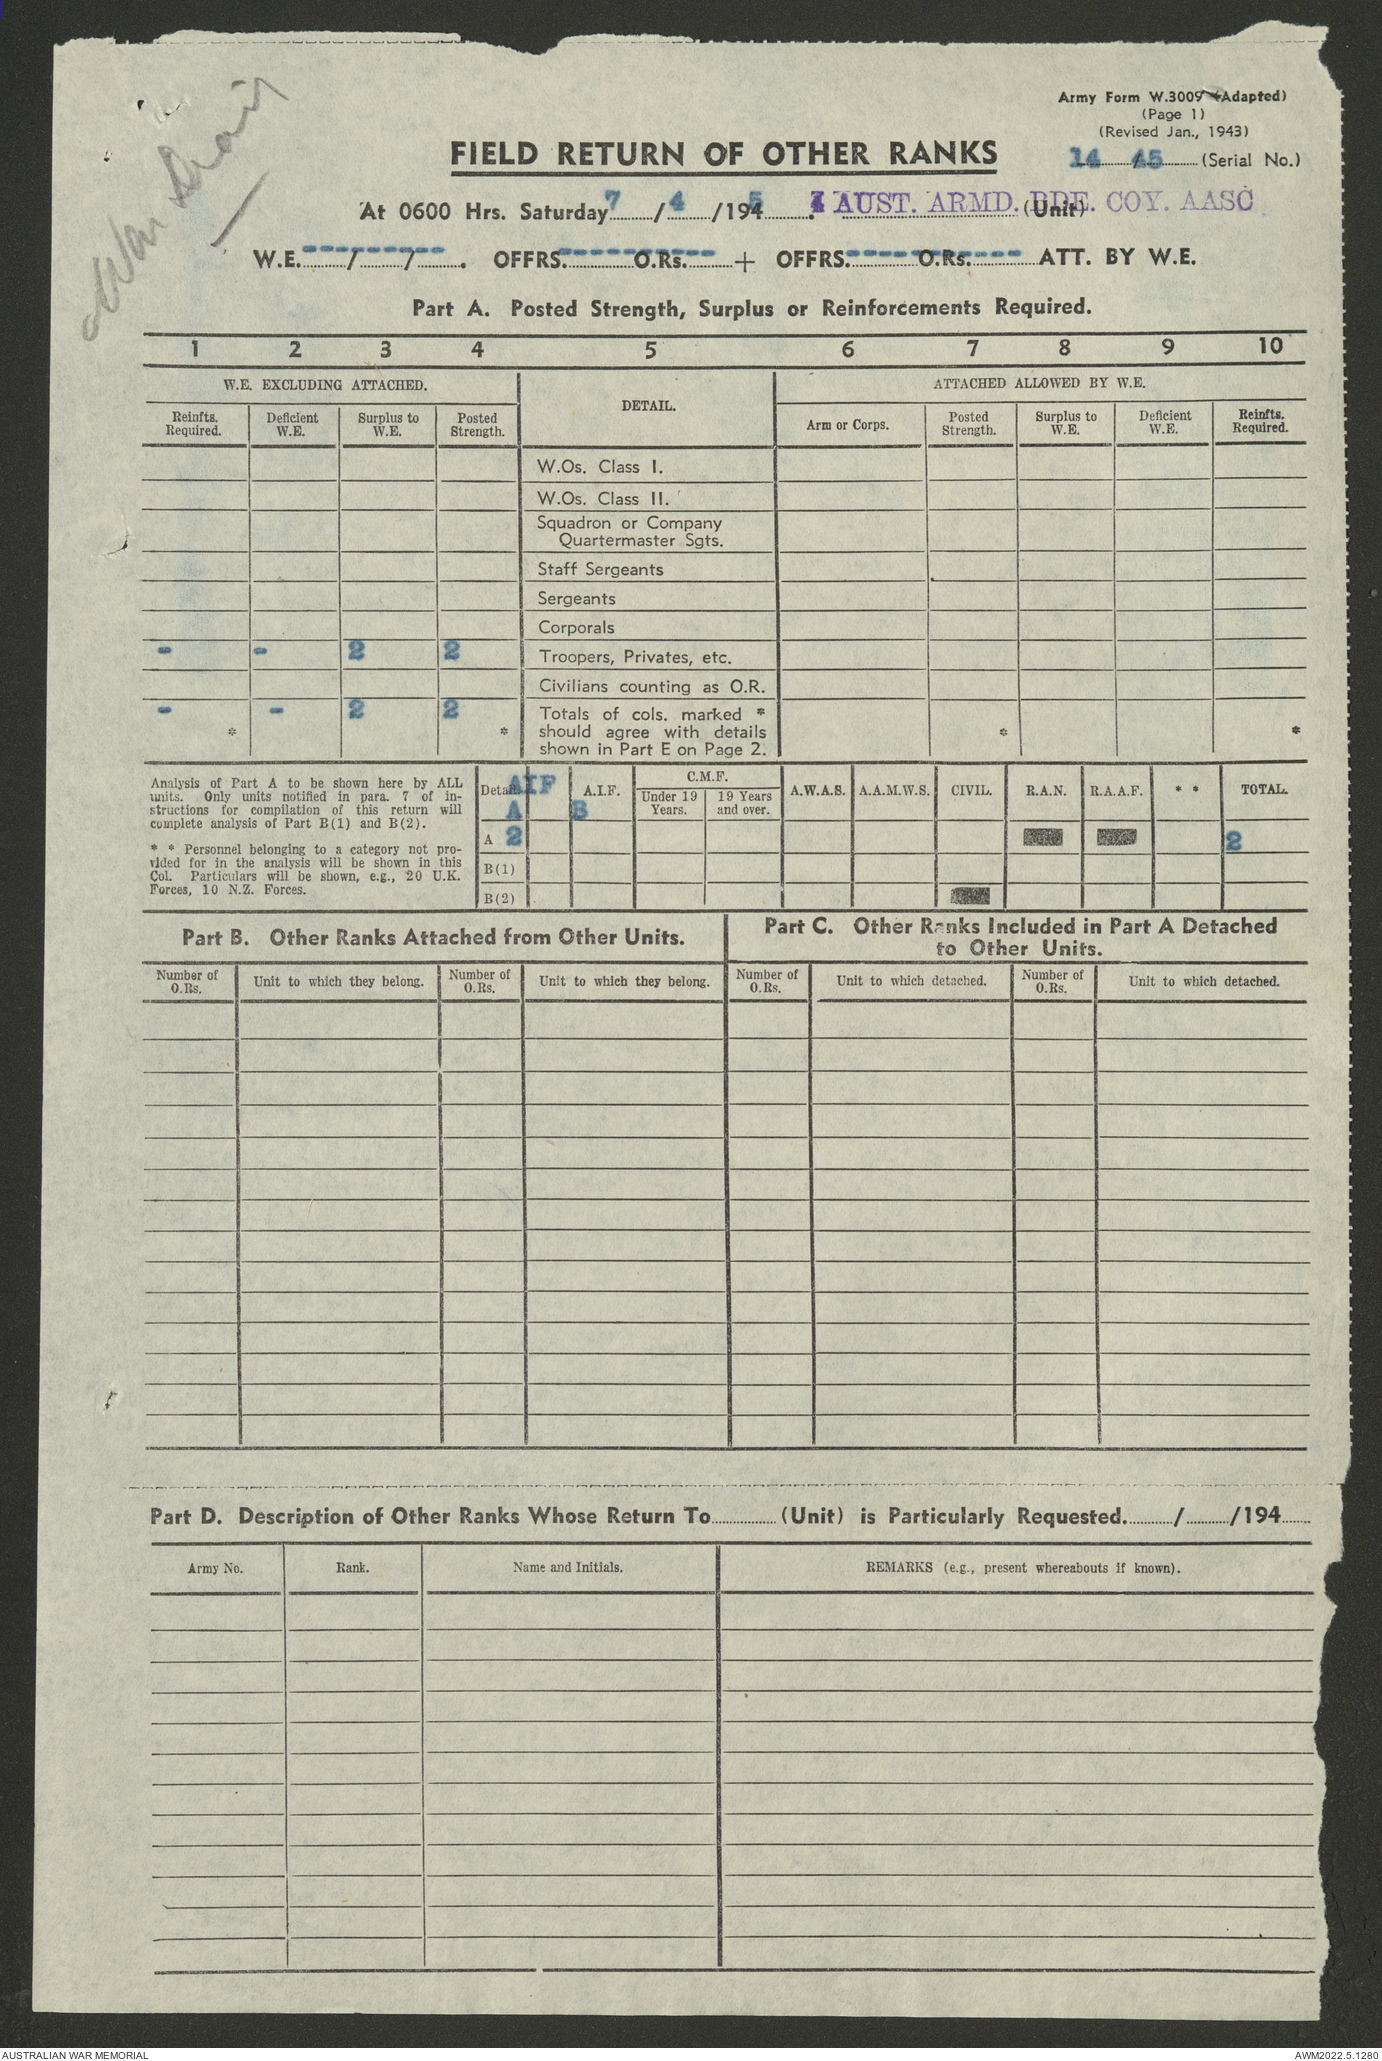 War Diary
Army Form W.3009 (Adapted)
(Page 1)
(Revised Jan., 1943)
FIELD RETURN OF OTHER RANKS
14 / 45 (Serial No.)
At 0600 Hrs. Saturday 7 / 4 /1945. AUST. ARMD. BDE. COY. AASC (Unit)
W.E. ---/---/---. OFFRS. ------ O.Rs. --- + OFFRS. ------ O.Rs. --- ATT. BY W.E.
Part A. Posted Strength, Surplus or Reinforcements Required.
1 2 3 4 5 6 7 8 9 10
W.E. EXCLUDING ATTACHED. DETAIL. ATTACHED ALLOWED BY W.E.
Reinfts. Required. Deficient W.E. Surplus to W.E. Posted Strength. Arm or Corps. Posted Strength. Surplus to W.E. Deficient W.E. Reinfts. Required.
W.Os. Class I.
W.Os. Class II.
Squadron or Company
Quartermaster Sgts.
Staff Sergeants
Sergeants
Corporals
- - 2 2 Troopers, Privates, etc.
Civilians counting as O.R.
- - 2 2 Totals of cols. marked *
* * should agree with details * *
shown in Part E on Page 2.
Analysis of Part A to be shown here by ALL
units. Only units notified in para. 7 of in-
structions for compilation of this return will
complete analysis of Part B(1) and B(2).
* * Personnel belonging to a category not pro-
vided for in the analysis will be shown in this
Col. Particulars will be shown, e.g., 20 U.K.
Forces, 10 N.Z. Forces.
Detail. AIF A.I.F. C.M.F. A.W.A.S. A.A.M.W.S. CIVIL. R.A.N. R.A.A.F. * * TOTAL.
A B Under 19 Years. 19 Years and over.
A 2 2
B(1)
B(2)
Part B. Other Ranks Attached from Other Units.
Part C. Other Ranks Included in Part A Detached
to Other Units.
Number of O.Rs. Unit to which they belong. Number of O.Rs. Unit to which they belong. Number of O.Rs. Unit to which detached. Number of O.Rs. Unit to which detached.
Part D. Description of Other Ranks Whose Return To............(Unit) is Particularly Requested........./........./194......
Army No. Rank. Name and Initials. REMARKS (e.g., present whereabouts if known).
AUSTRALIAN WAR MEMORIAL AWM2022.5.1280